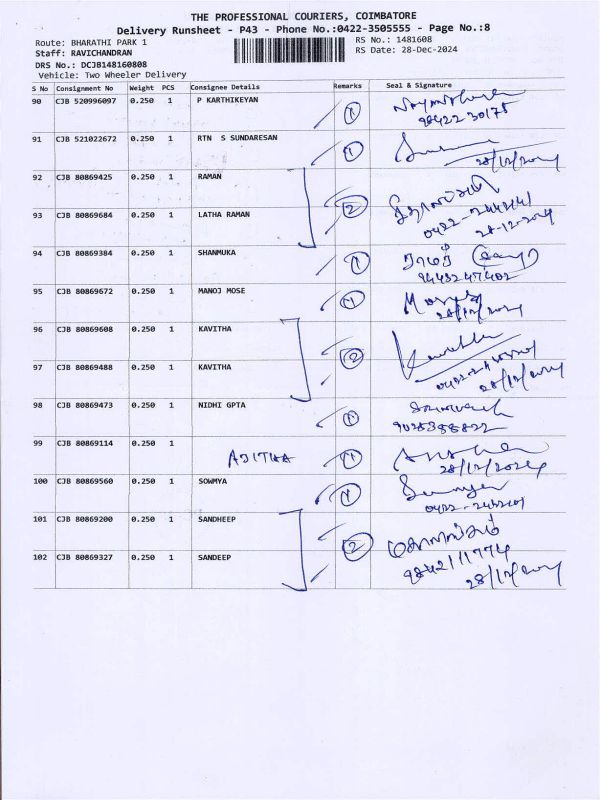 THE PROFESSIONAL COURIERS, COIMBATORE
Delivery Runsheet - P43 - Phone No.:0422-3505555 - Page No.:8
Route: BHARATHI PARK 1 RS No.: 1481608
Staff: RAVICHANDRAN RS Date: 28-Dec-2024
DRS No.: DCJB148160808
Vehicle: Two Wheeler Delivery
S No Consignment No Weight PCS Consignee Details Remarks Seal & Signature
90 CJB 520996097 0.250 1 P KARTHIKEYAN 1
98422 30175
91 CJB 521022672 0.250 1 RTN S SUNDARESAN 1
28/12/2024
92 CJB 80869425 0.250 1 RAMAN 2
93 CJB 80869684 0.250 1 LATHA RAMAN
28-12-2024
94 CJB 80869384 0.250 1 SHANMUKA 1
95 CJB 80869672 0.250 1 MANOJ MOSE 1
28/12/2024
96 CJB 80869608 0.250 1 KAVITHA 2
97 CJB 80869488 0.250 1 KAVITHA
28/12/2024
98 CJB 80869473 0.250 1 NIDHI GPTA 1
99 CJB 80869114 0.250 1 ADITHA 1
28/12/2024
100 CJB 80869560 0.250 1 SOWMYA 1
101 CJB 80869200 0.250 1 SANDHEEP 2
102 CJB 80869327 0.250 1 SANDEEP
9842111774
28/12/2024